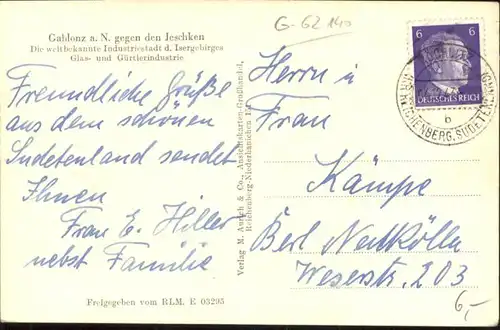 G-62140
Gablonz a. N. gegen den Jeschken
Die weltbekannte Industriestadt d. Isergebirges
Glas- und Gürtlerindustrie
Freundliche Grüße
aus dem schönen
Sudetenland sendet
Ihnen
Frau E. Hiller
nebst Familie
Freigegeben vom RLM. E 03295
Verlag M. Aurich & Co., Ansichtskarten-Großhandel,
Reichenberg-Niederhanichen
6 6
DEUTSCHES REICH
b
REICHENBERG, SUDETENL
Herrn u
Frau
Kämpe
Berl Neukölln
Weserstr. 203
6,-